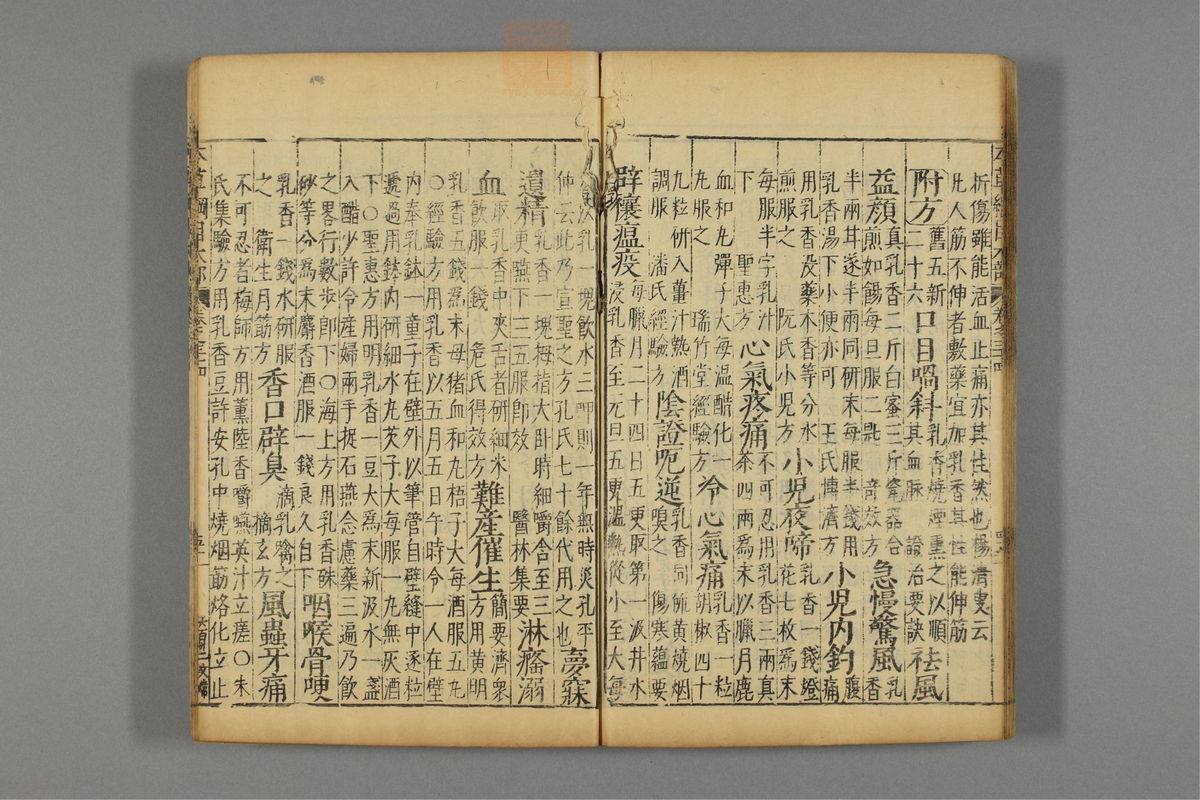 折傷雖能活血止痛亦其性然也楊清叟云
凡人筋不伸者敷藥宜加乳香其性能伸筋
附方舊五新二十六口目喎斜乳香燒煙熏之以順其血脉證治要訣祛風
益顏真乳香二斤白蜜三斤瓷器合煎如餳每旦服二匙奇效方急慢驚風乳香
半兩甘遂半兩同研末每服半錢用乳香湯下小便亦可王氏博濟方小兒内釣腹痛
用乳香没藥木香等分水煎服之阮氏小兒方小兒夜啼乳香一錢燈花七枚爲末
每服半字乳汁下聖惠方心氣疼痛不可忍用乳香三兩真茶四兩爲末以臘月鹿
血和丸彈子大每温醋化一丸服之瑞竹堂經驗方冷心氣痛乳香一粒胡椒四十
九粒研入薑汁熱酒調服潘氏經驗方陰證呃逆乳香同硫黄燒烟嗅之傷寒蘊要
辟禳瘟疫每臘月二十四日五更取第一汲井水浸乳香至元旦五更温熱從小至大每
人以乳一塊飲水三呷則一年無時災孔平仲云此乃宣聖之方孔氏七十餘代用之也夢寐
遺精乳香一塊拇指大卧時細嚼含至三更嚥下三五服即效醫林集要淋癃溺
血取乳香中夾石者研細米飲服一錢危氏得效方難産催生簡要濟衆方用黄明
乳香五錢爲末母猪血和丸梧子大每酒服五丸○經驗方用乳香以五月五日午時令一人在壁
内奉乳鉢一童子在壁外以筆管自壁縫中逐粒遞過用鉢内研細水丸芡子大每服一丸無灰酒
下○聖惠方用明乳香一豆大爲末新汲水一盞入醋少許令産婦兩手捉石燕念慮藥三遍乃飲
之畧行數步即下○海上方用乳香硃砂等分爲末麝香酒服一錢良久自下咽喉骨哽
乳香一錢水研服之衛生方香口辟臭滴乳噙之摘玄方風蟲牙痛
不可忍者梅師方用薰陸香嚼嚥其汁立瘥○朱氏集驗方用乳香豆許安孔中燒烟筋烙化立止